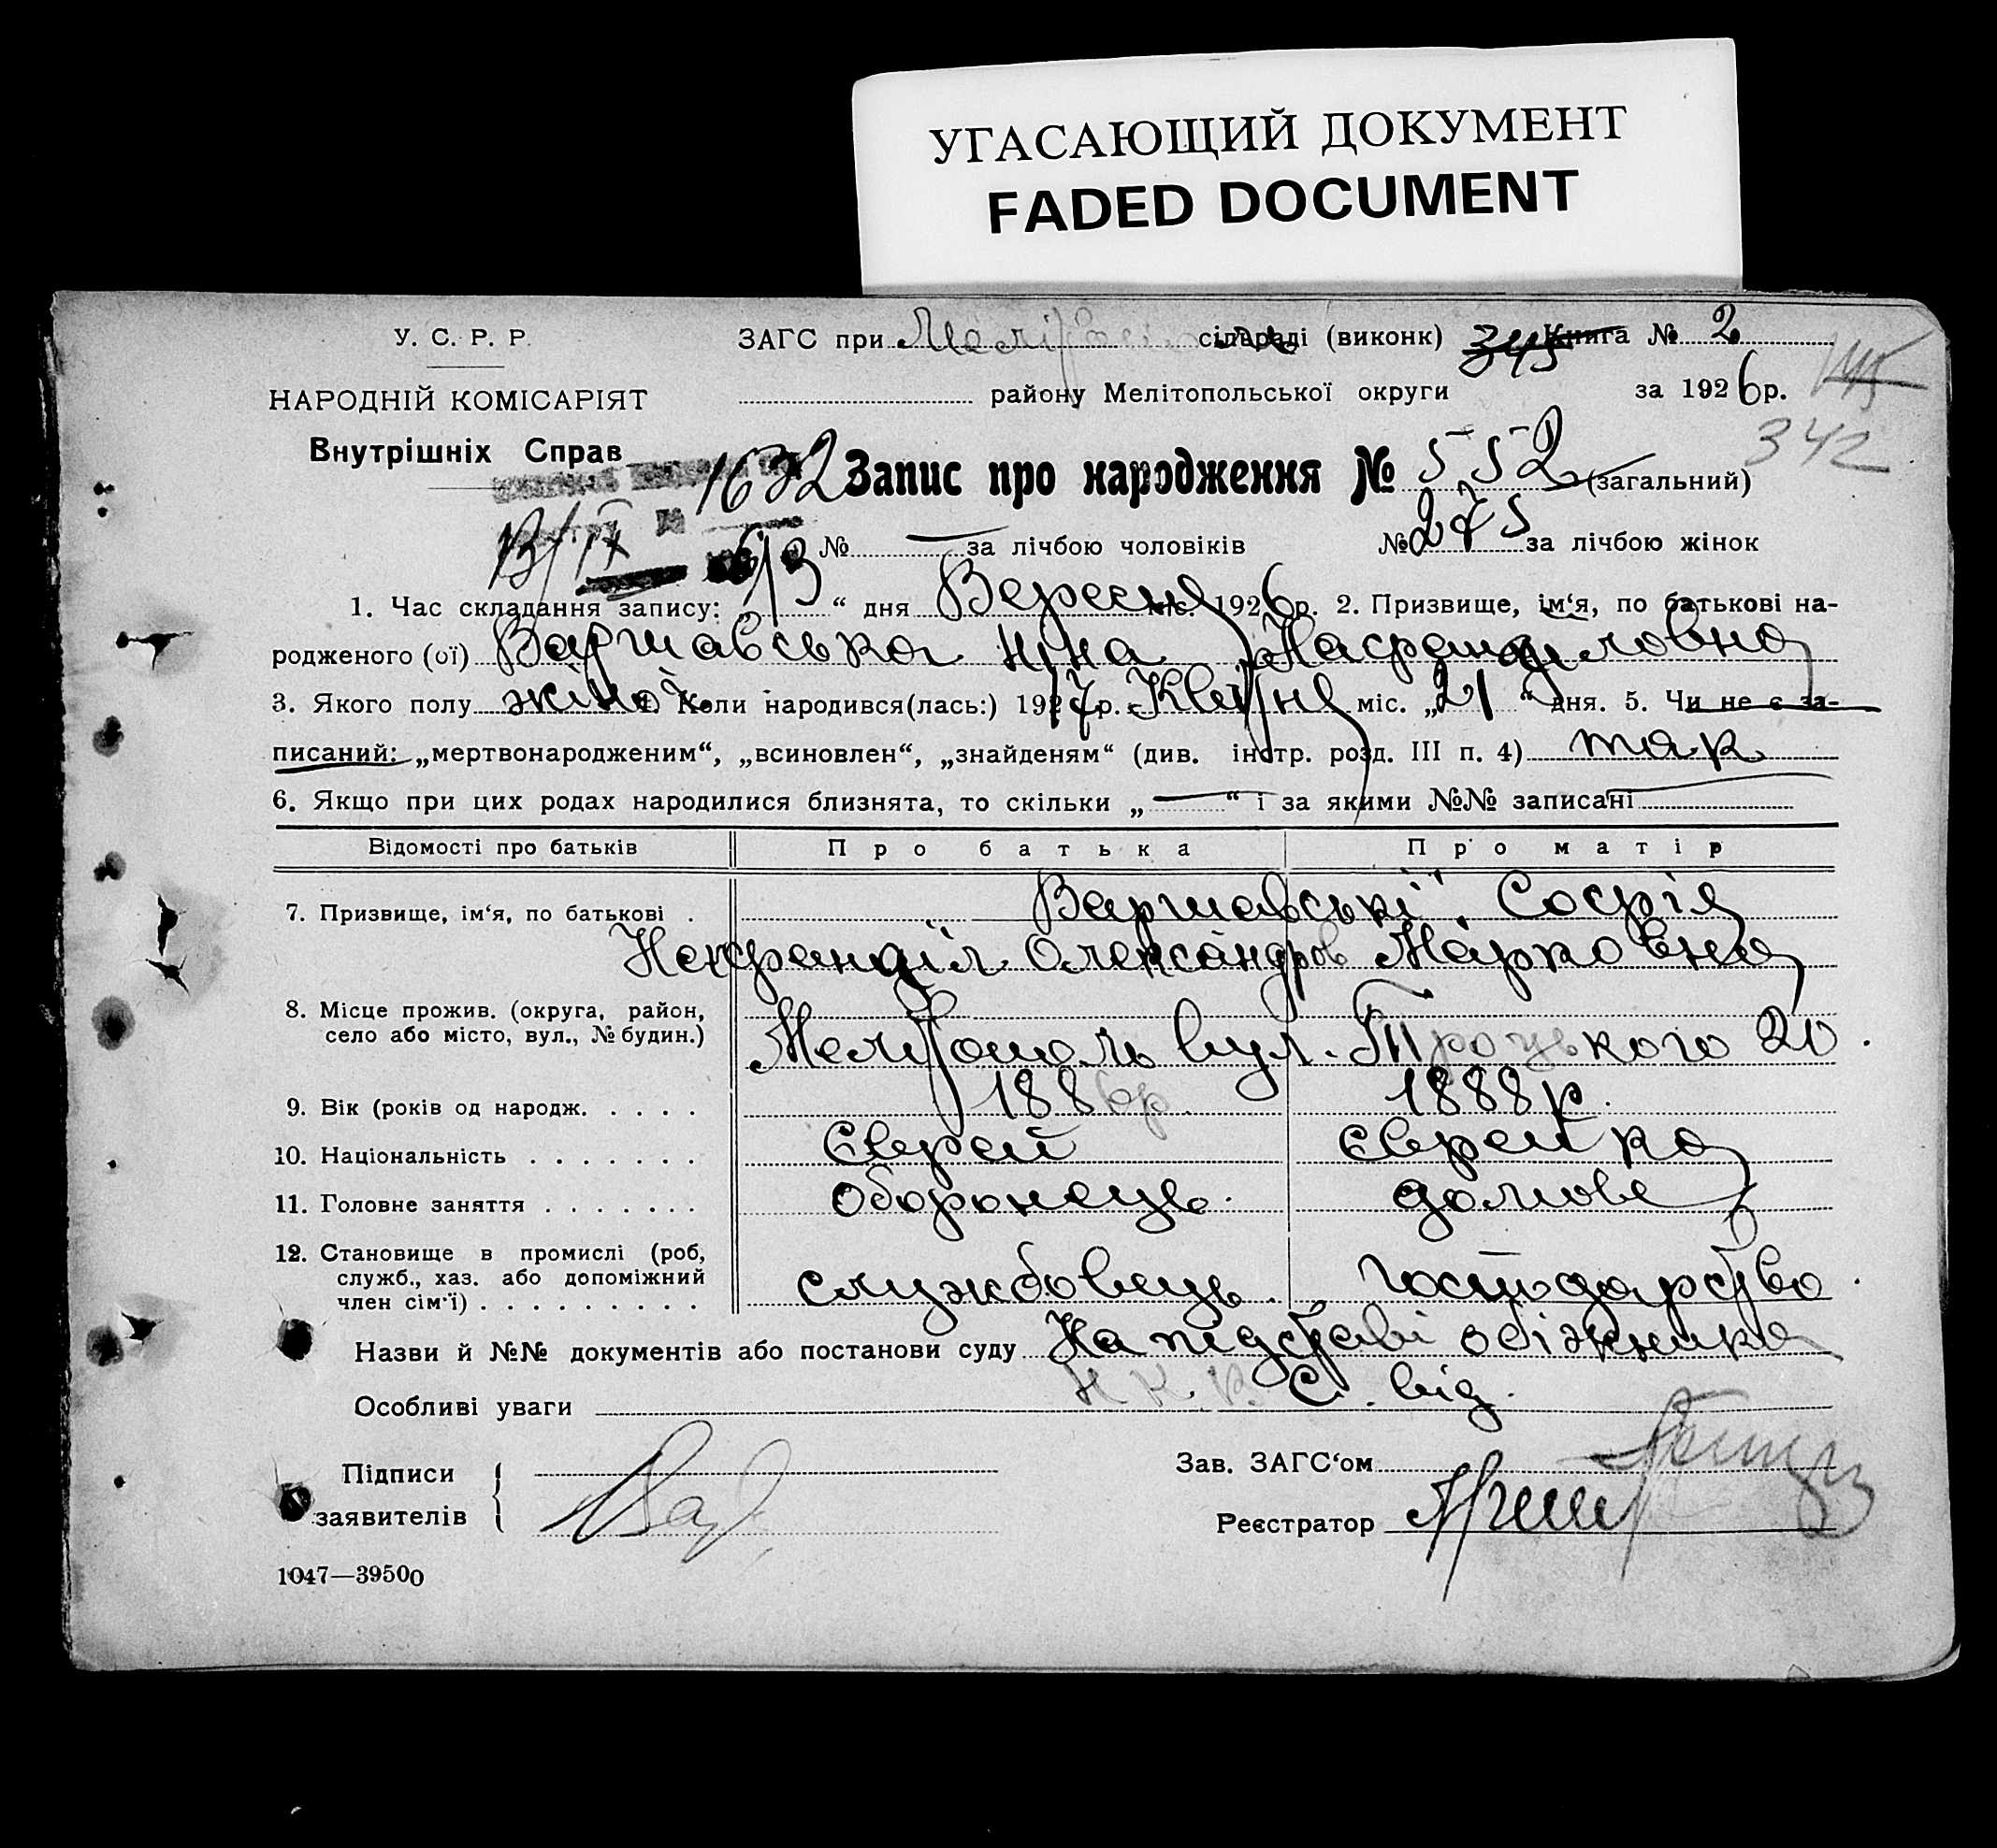 УГАСАЮЩИЙ ДОКУМЕНТ
FADED DOCUMENT
У. С. Р. Р.
НАРОДНІЙ КОМІСАРІЯТ
Внутрішніх Справ
ЗАГС при сільраді (виконк) 345 Книга № 2
району Мелітопольської округи за 1926 р.
342
1632 Запис про народження № 552 (загальний)
№ — за лічбою чоловіків № 275 за лічбою жінок
1. Час складання запису: „13“ дня Вересня міс. 1926 р. 2. Призвище, ім‘я, по батькові на-
родженого (ої) Варшавська Ніна
3. Якого полу жіноч. 4. Коли народився(лась:) 1917 р. Квітня міс. „21“ дня. 5. Чи не є за-
писаний: „мертвонародженим“, „всиновлен“, „знайденям“ (див. інстр. розд. III п. 4) так
6. Якщо при цих родах народилися близнята, то скільки „—“ і за якими №№ записані
Відомості про батьків Про батька Про матір
7. Призвище, ім‘я, по батькові . Варшавські Софія
Олександров Марковна
8. Місце прожив. (округа, район,
село або місто, вул., № будин.)
Мелітополь вул. Троцького 20.
9. Вік (років од народж. . . . . 1886р. 1888р.
10. Національність . . . . . . . Єврей Єврейка
11. Головне заняття . . . . . . . Оборонець. домове
12. Становище в промислі (роб,
служб., хаз. або допоміжний
член сім‘ї) . . . . . . . . . службовець. господарство.
Назви й №№ документів або постанови суду На підставі обіжника
Особливі уваги Н.К.В.С. від.
Підписи
заявителів
Зав. ЗАГС‘ом
Реєстратор
1047—39500